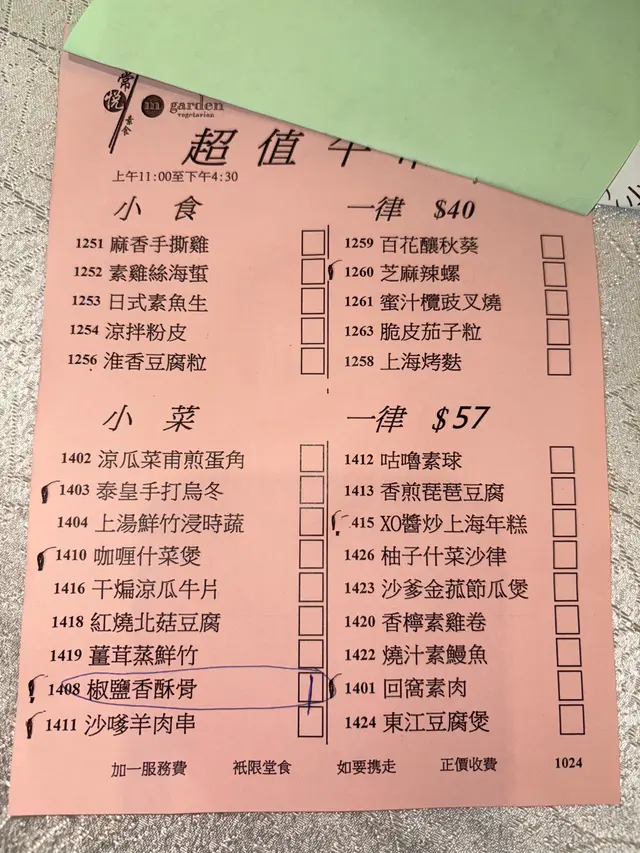 常悅
素食
m garden
vegetarian
超值
上午11:00至下午4:30
小食 一律 $40
1251 麻香手撕雞
1252 素雞絲海蜇
1253 日式素魚生
1254 涼拌粉皮
1256 淮香豆腐粒
1259 百花釀秋葵
1260 芝麻辣螺
1261 蜜汁欖豉叉燒
1263 脆皮茄子粒
1258 上海烤麩
小菜 一律 $57
1402 涼瓜菜甫煎蛋角
1403 泰皇手打烏冬
1404 上湯鮮竹浸時蔬
1410 咖喱什菜煲
1416 干煸涼瓜牛片
1418 紅燒北菇豆腐
1419 薑茸蒸鮮竹
1408 椒鹽香酥骨
1411 沙嗲羊肉串
1412 咕嚕素球
1413 香煎琵琶豆腐
415 XO醬炒上海年糕
1426 柚子什菜沙律
1423 沙爹金菰節瓜煲
1420 香檸素雞卷
1422 燒汁素鰻魚
1401 回窩素肉
1424 東江豆腐煲
加一服務費 祇限堂食 如要携走 正價收費 1024